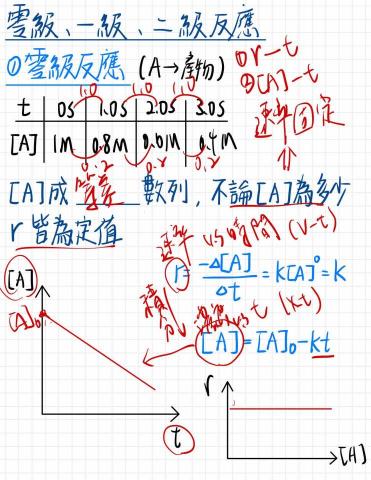 零級、一級、二級反應
①零級反應 (A→產物)
①r-t
②[A]-t
速率固定
⇑
1.0 1.0 1.0
t 0s 1.0s 2.0s 3.0s
[A] 1M 0.8M 0.61M 0.4M
0.2 0.2 0.2
[A]成等差數列,不論[A]為多少
r皆為定值
速率 vs時間 (v-t)
r=-Δ[A]/Δt=k[A]⁰=k
積分
vs t (x-t)
[A]=[A]₀-kt
[A]
[A]₀
t
r
[A]